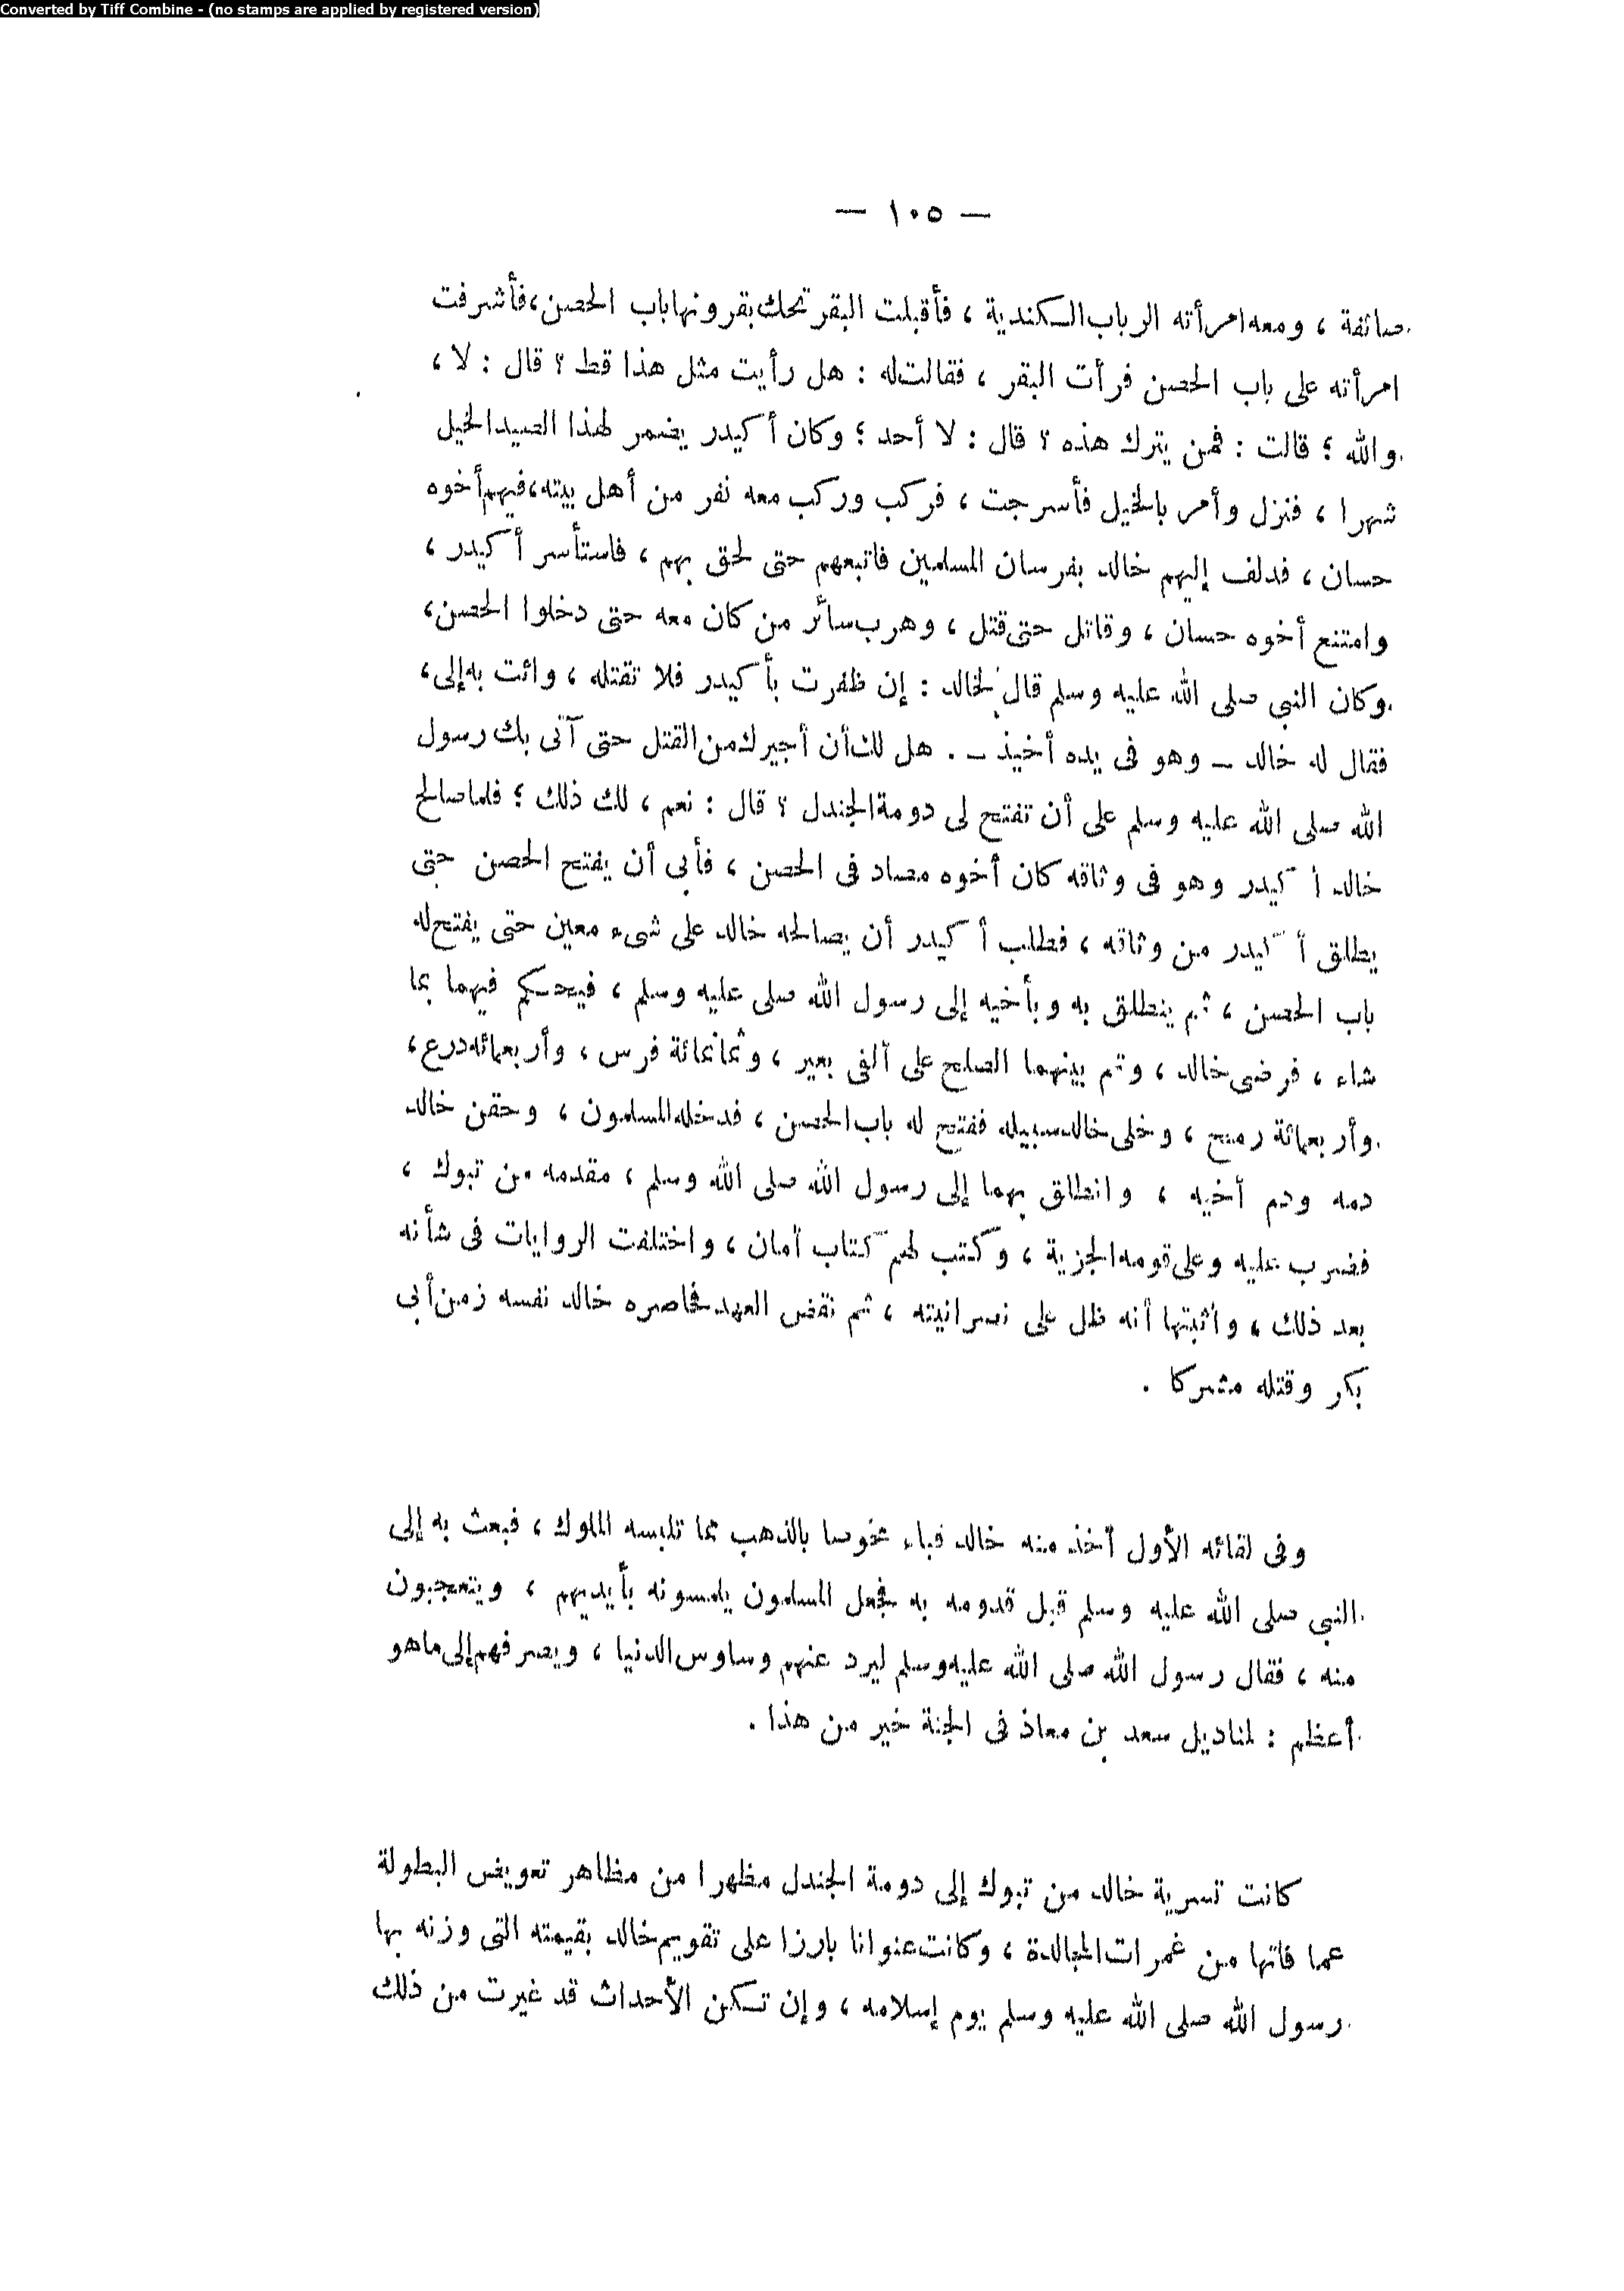 Converted by Tiff Combine - (no stamps are applied by registered version)
— ١٠٥ —
صائفة ، ومعه امرأته الرباب الكندية ، فأقبلت البقر تحك بقرونها باب الحصن ، فأشرفت
امرأته على باب الحصن فرأت البقر ، فقالت له : هل رأيت مثل هذا قط ؟ قال : لا ،
والله ؛ قالت : فمن يترك هذه ؟ قال : لا أحد ؛ وكان أكيدر يضمر لهذا الصيد الخيل
شهرا ، فنزل وأمر بالخيل فأسرجت ، فركب وركب معه نفر من أهل بيته ، فيهم أخوه
حسان ، فدلف إليهم خالد بفرسان المسلمين فاتبعهم حتى لحق بهم ، فاستأسر أكيدر ،
وامتنع أخوه حسان ، وقاتل حتى قتل ، وهرب سائر من كان معه حتى دخلوا الحصن ،
وكان النبي صلى الله عليه وسلم قال لخالد : إن ظفرت بأكيدر فلا تقتله ، وائت به إلى ،
فقال له خالد – وهو فى يده أخيذ – . هل لك أن أجيرك من القتل حتى آتى بك رسول
الله صلى الله عليه وسلم على أن تفتح لى دومة الجندل ؟ قال : نعم ، لك ذلك ؛ فلما صالح
خالد أكيدر وهو فى وثاقه كان أخوه مصاد فى الحصن ، فأبى أن يفتح الحصن حتى
يطلق أكيدر من وثاقه ، فطلب أكيدر أن يصالحه خالد على شىء معين حتى يفتح له
باب الحصن ، ثم ينطلق به وبأخيه إلى رسول الله صلى عليه وسلم ، فيحكم فيهما بما
شاء ، فرضى خالد ، وتم بينهما الصلح على ألفى بعير ، وثمانمائة فرس ، وأربعمائه درع ،
وأربعمائة رمح ، وخلى خالد سبيله ففتح له باب الحصن ، فدخله المسلمون ، وحقن خالد
دمه ودم أخيه ، وانطلق بهما إلى رسول الله صلى الله وسلم ، مقدمه من تبوك ،
فضرب عليه وعلى قومه الجزية ، وكتب لهم كتاب أمان ، واختلفت الروايات فى شأنه
بعد ذلك ، وأثبتها أنه ظل على نصرانيته ، ثم نقض العهد فحاصره خالد نفسه زمن أبى
بكر وقتله مشركا .
وفى لقائه الأول أخذ منه خالد قباء مخوصا بالذهب مما تلبسه الملوك ، فبعث به إلى
النبي صلى الله عليه وسلم قبل قدومه به فجعل المسلمون يلمسونه بأيديهم ، ويتعجبون
منه ، فقال رسول الله صلى الله عليه وسلم ليرد عنهم وساوس الدنيا ، ويصرفهم إلى ما هو
أعظم : لمناديل سعد بن معاذ فى الجنة خير من هذا .
كانت تسرية خالد من تبوك إلى دومة الجندل مظهرا من مظاهر تعويض البطولة
عما فاتها من غمرات المجالدة ، وكانت عنوانا بارزا على تقويم خالد بقيمته التى وزنه بها
رسول الله صلى الله عليه وسلم يوم إسلامه ، وإن تكن الأحداث قد غيرت من ذلك